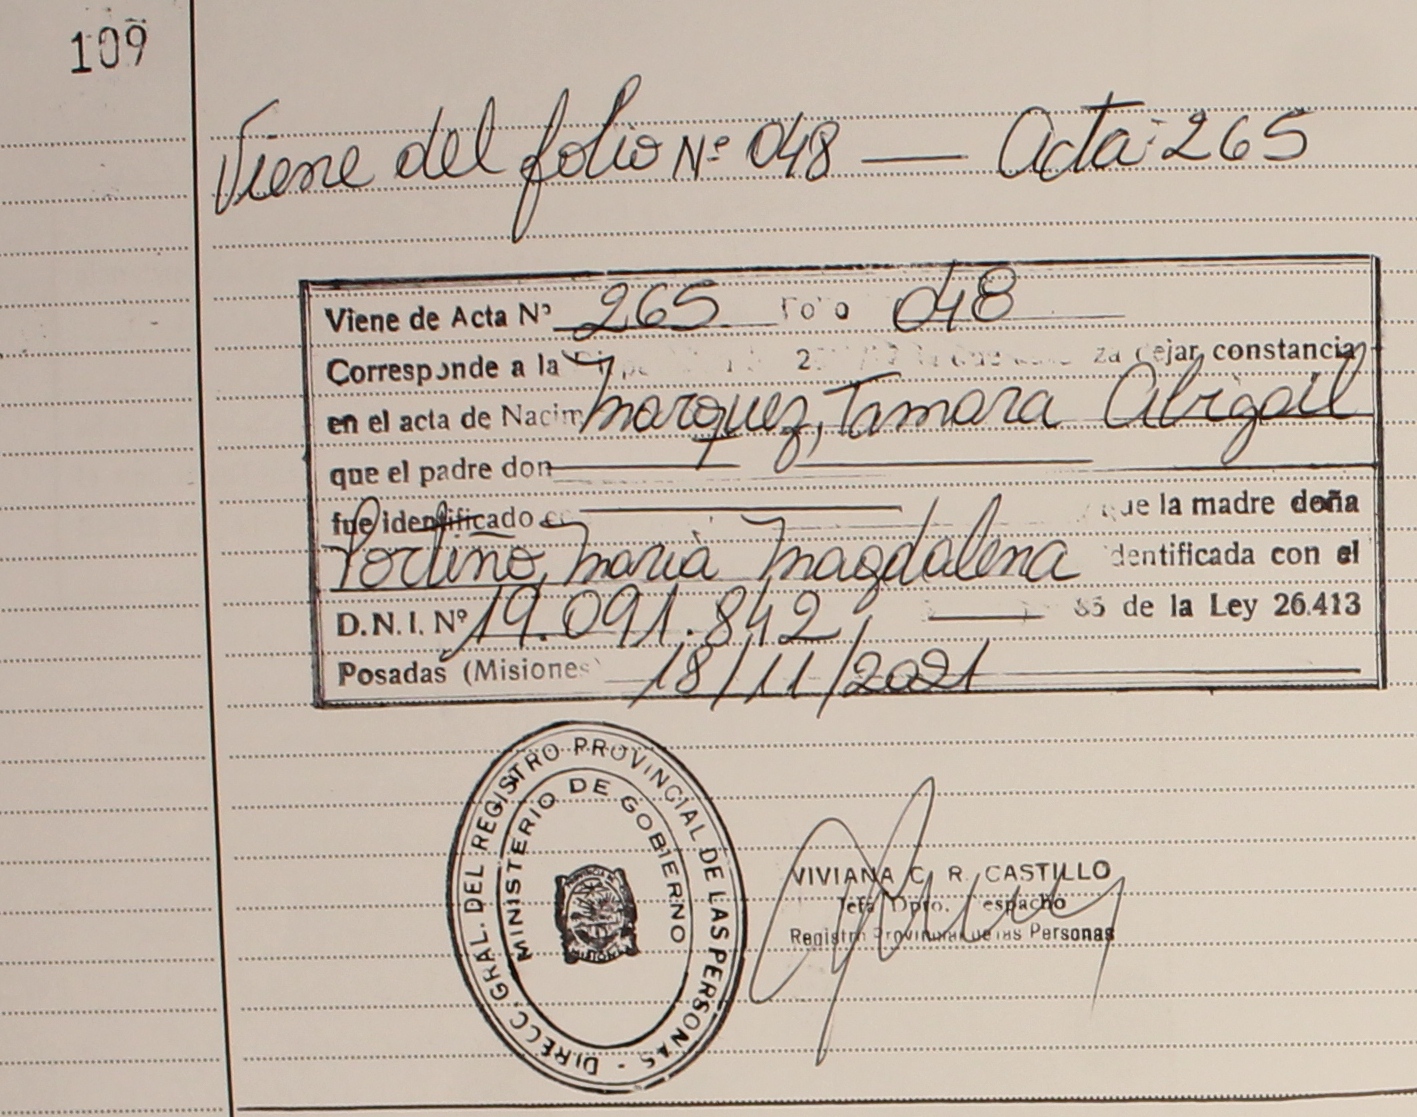 109
Viene del folio Nº 048 — Acta: 265
Viene de Acta Nº 265 048
Corresponde a la dejar constancia
en el acta de Nacim Marquez, Tamara Abigail
que el padre don
fue identificado que la madre doña
Portiño, Maria Magdalena identificada con el
D.N.I. Nº 19.091.842, 85 de la Ley 26.413
Posadas (Misiones) 18/11/2021
DIRECC. GRAL. DEL REGISTRO PROVINCIAL DE LAS PERSONAS -
MINISTERIO DE GOBIERNO
VIVIANA C. R. CASTILLO
Jefa Dpto. Despacho
Registro Provincial de las Personas